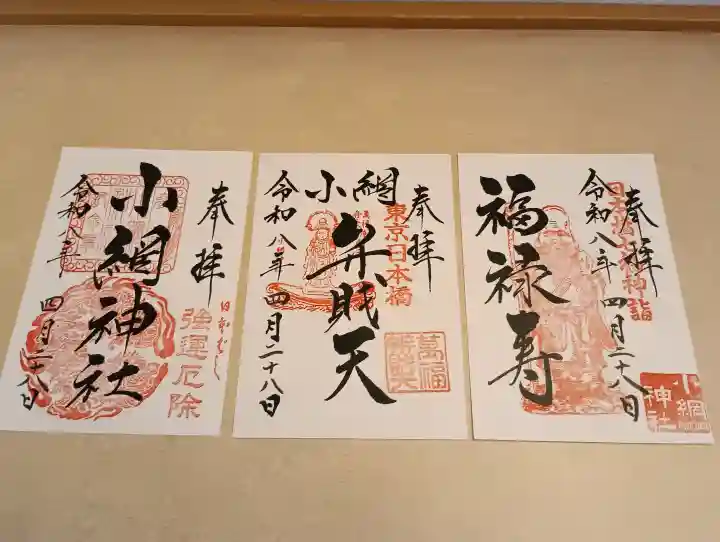 奉拝
日本ばし
強運厄除
小網神社
令和八年 四月二十八日
奉拝
東京日本橋
小網
弁財天
萬福
令和八年 四月二十八日
奉拝
福禄寿
小網
神社
令和八年 四月二十八日